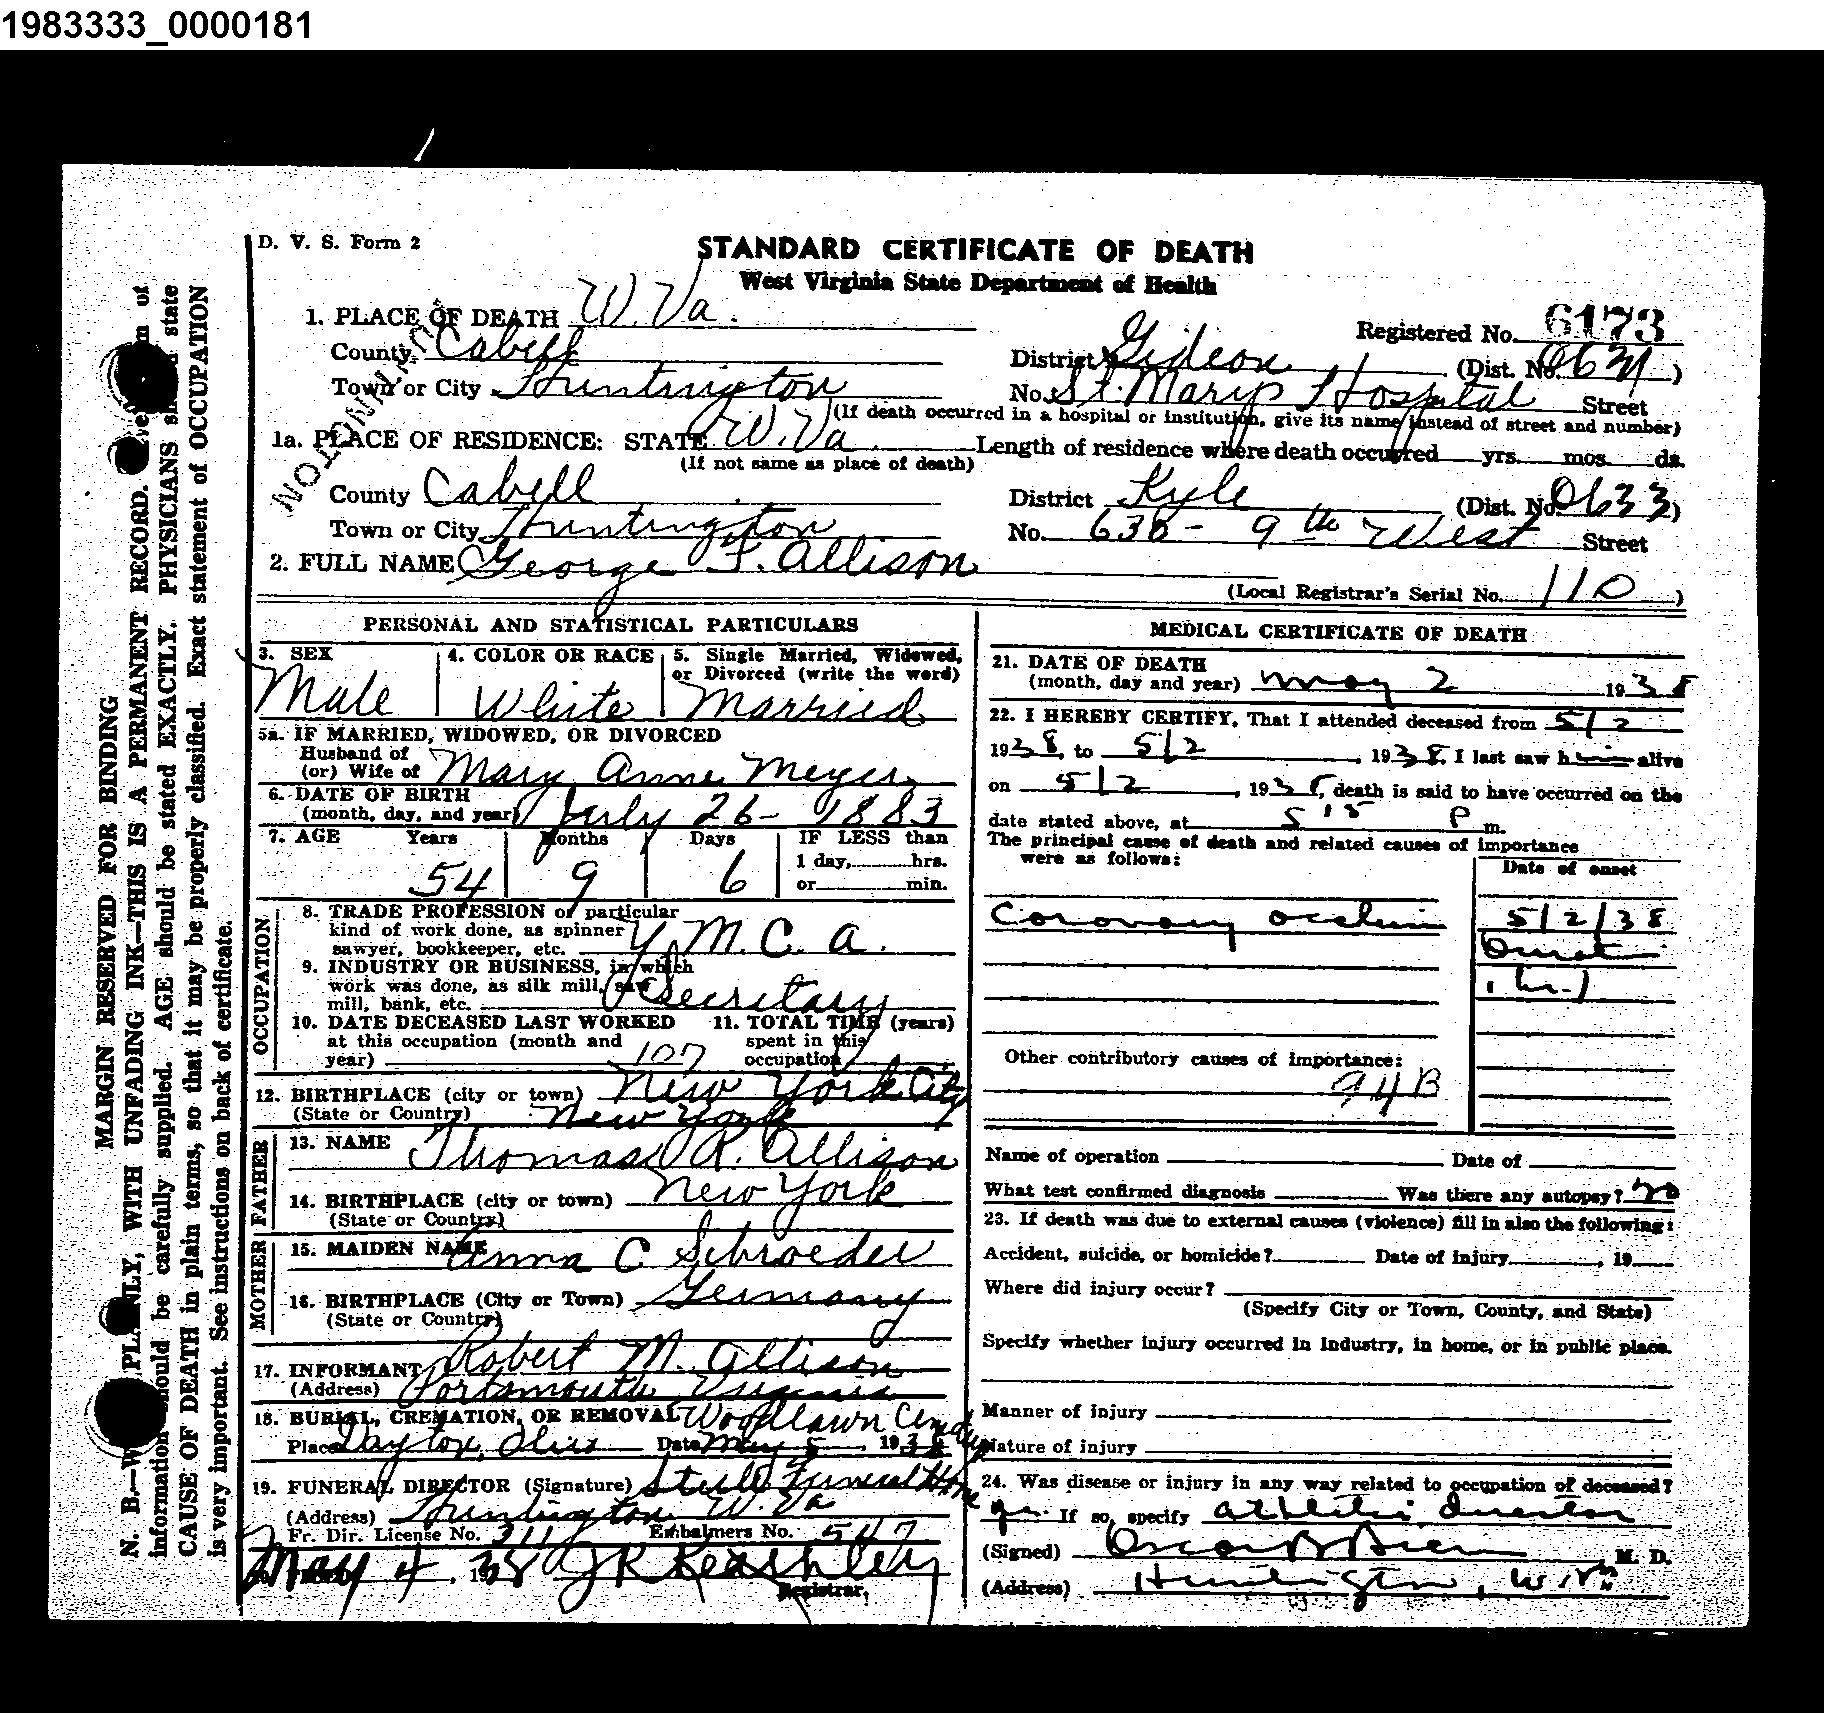 1983333_0000181
D. V. S. Form 2
STANDARD CERTIFICATE OF DEATH
West Virginia State Department of Health
1. PLACE OF DEATH W. Va.
Registered No. 6173
County Cabell
District Gideon (Dist. No. 0631)
Town or City Huntington
No. St. Marys Hospital Street
(If death occurred in a hospital or institution, give its name instead of street and number)
1a. PLACE OF RESIDENCE: STATE W. Va.
(If not same as place of death)
Length of residence where death occurred yrs. mos. ds.
NOT ON
County Cabell
District Kyle (Dist. No. 0633)
Town or City Huntington
No. 636 - 9th West Street
2. FULL NAME George F. Allison
(Local Registrar's Serial No. 110)
PERSONAL AND STATISTICAL PARTICULARS
3. SEX Male
4. COLOR OR RACE White
5. Single Married, Widowed, or Divorced (write the word) Married
5a. IF MARRIED, WIDOWED, OR DIVORCED
Husband of
(or) Wife of Mary Anne Meyer
6. DATE OF BIRTH
(month, day, and year) July 26 - 1883
7. AGE Years Months Days IF LESS than
1 day, hrs.
or min.
54 9 6
OCCUPATION
8. TRADE PROFESSION or particular
kind of work done, as spinner
sawyer, bookkeeper, etc. Y. M. C. A.
9. INDUSTRY OR BUSINESS, in which
work was done, as silk mill, saw
mill, bank, etc. Secretary
10. DATE DECEASED LAST WORKED
at this occupation (month and
year) 107
11. TOTAL TIME (years)
spent in this
occupation
12. BIRTHPLACE (city or town) New York City
(State or Country) New York
FATHER
13. NAME Thomas R. Allison
14. BIRTHPLACE (city or town) New York
(State or Country)
MOTHER
15. MAIDEN NAME Anna C Schroeder
16. BIRTHPLACE (City or Town) Germany
(State or Country)
17. INFORMANT Robert M. Allison
(Address) Portsmouth, Virginia
18. BURIAL, CREMATION, OR REMOVAL Woodlawn
Place Dayton, Ohio Date May 5 1938
19. FUNERAL DIRECTOR (Signature) Steele Funeral Home
(Address) Huntington W. Va
Fr. Dir. License No. 311 Embalmers No. 547
May 4, 1938 J R Keathley
Registrar.
MEDICAL CERTIFICATE OF DEATH
21. DATE OF DEATH
(month, day and year) May 2 1938
22. I HEREBY CERTIFY, That I attended deceased from 5/2
1938, to 5/2, 1938, I last saw him alive
on 5/2, 1938, death is said to have occurred on the
date stated above, at 5:15 P m.
The principal cause of death and related causes of importance
were as follows:
Date of onset
Coronary occlusion 5/2/38
1 hr.)
Other contributory causes of importance:
94B
Name of operation Date of
What test confirmed diagnosis Was there any autopsy? no
23. If death was due to external causes (violence) fill in also the following:
Accident, suicide, or homicide? Date of injury, 19
Where did injury occur?
(Specify City or Town, County, and State)
Specify whether injury occurred in industry, in home, or in public place.
Manner of injury
Nature of injury
24. Was disease or injury in any way related to occupation of deceased?
yes. If so, specify Athletic Director
(Signed) Oscar B Biern M. D.
(Address) Huntington, W. Va
MARGIN RESERVED FOR BINDING
N. B.—WRITE PLAINLY, WITH UNFADING INK—THIS IS A PERMANENT RECORD. Every item of
information should be carefully supplied. AGE should be stated EXACTLY. PHYSICIANS should state
CAUSE OF DEATH in plain terms, so that it may be properly classified. Exact statement of OCCUPATION
is very important. See instructions on back of certificate.